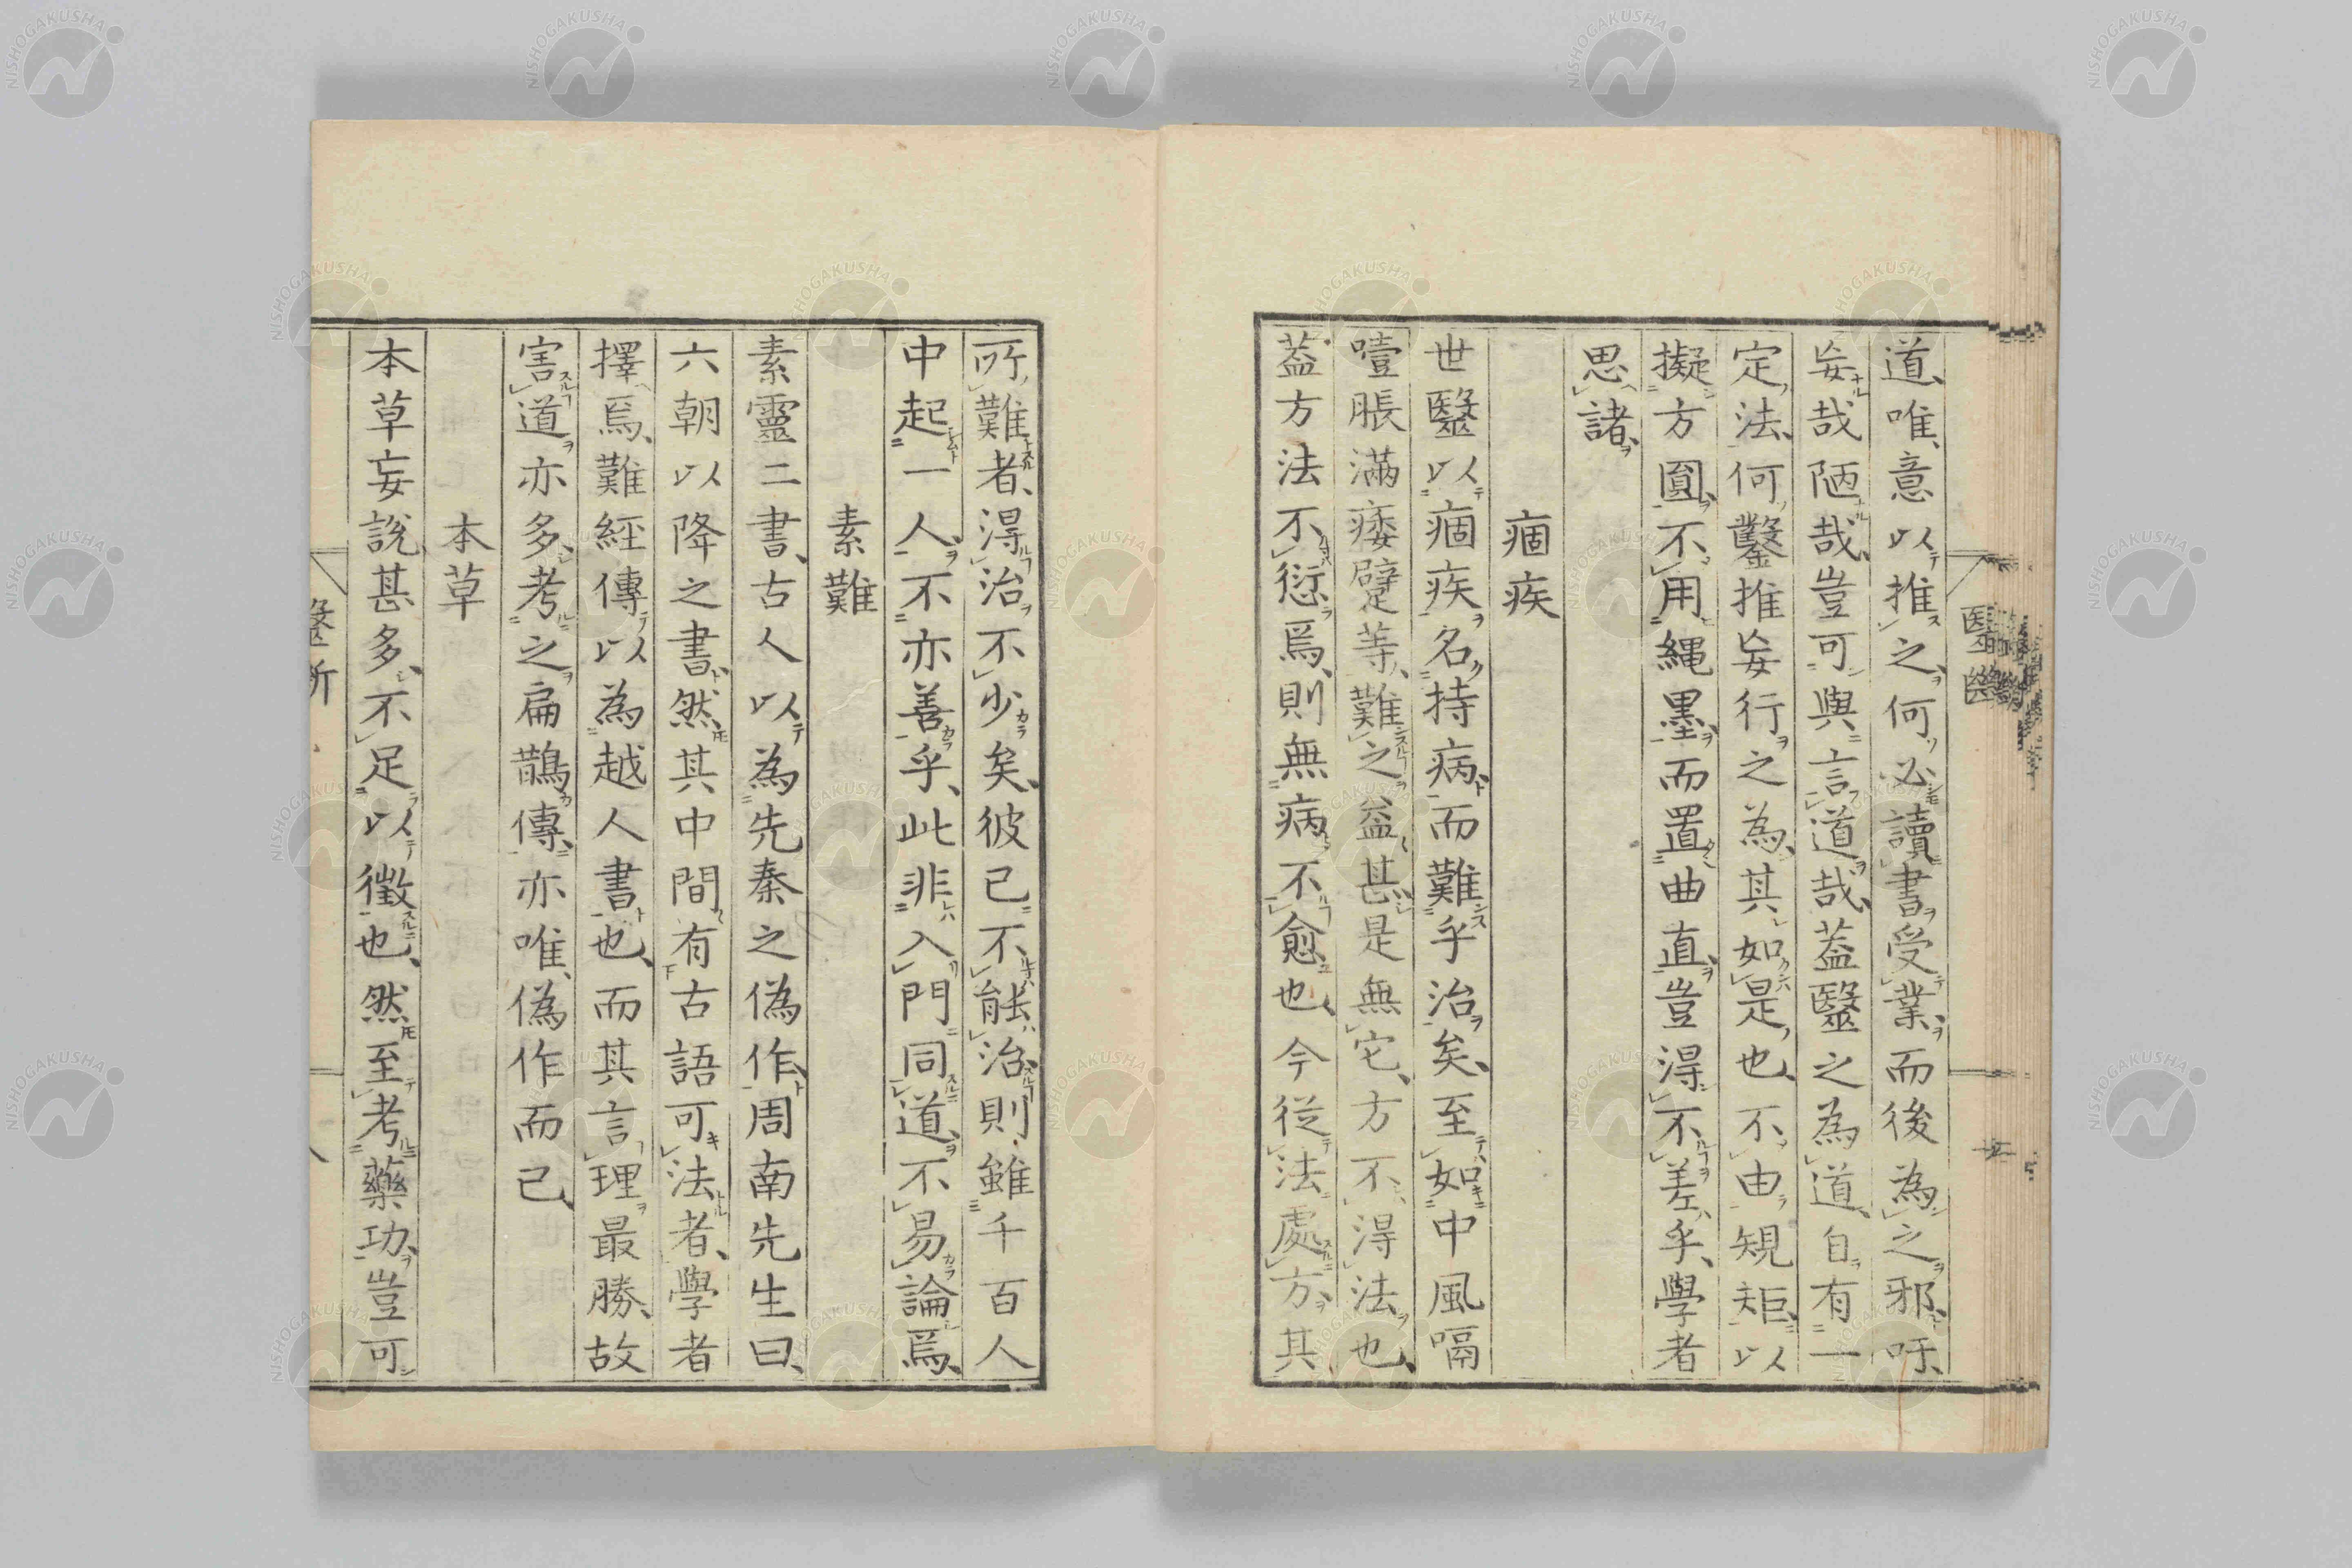 道唯意以推之何必讀書受業而後為之邪吁
妄哉陋哉豈可與言道哉葢醫之為道自有一
定法何鑿推妄行之為其如是也不由規矩以
擬方圓不用繩墨而置曲直豈得不差乎學者
思諸
痼疾
世醫以痼疾名持病而難乎治矣至如中風嗝
噎脹滿痿躄等難之益甚是無它方不得法也
葢方法不愆焉則無病不愈也今從法處方其
所難者得治不少矣彼已不能治則雖千百人
中起一人不亦善乎此非入門同道不易論焉
素難
素靈二書古人以為先秦之偽作周南先生曰
六朝以降之書然其中間有古語可法者學者
擇焉難經傳以為越人書也而其言理最勝故
害道亦多考之扁鵲傳亦唯偽作而已
本草
本草妄說甚多不足以徵也然至考藥功豈可
醫斷
NISHOGAKUSHA